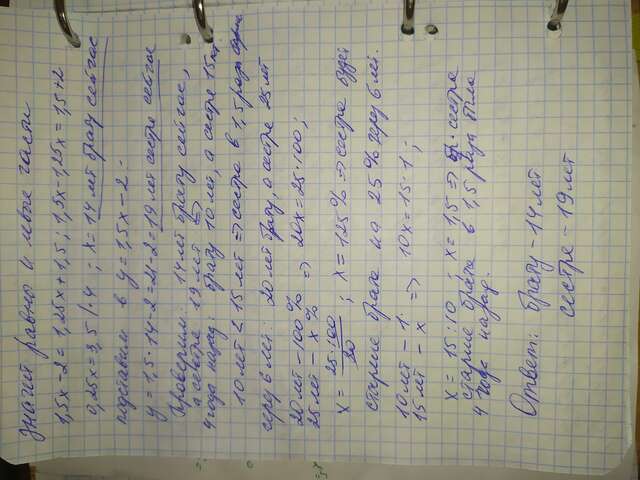 значит равны и левые части
1,5x-2=1,25x+1,5; 1,5x-1,25x=1,5+2
0,25x=3,5 |·4 ; x=14 лет брату сейчас
подставим в y=1,5x-2.
y=1,5·14-2=21-2=19 лет сестре сейчас
Проверим: 14 лет брату сейчас,
а сестре 19 лет =>
4 года назад: брату 10 лет, а сестре 15 лет
10 лет < 15 лет => сестра в 1,5 раза
через 6 лет: 20 лет брату, а сестре 25 лет
20 лет - 100% => 20x=25·100;
25 лет - x%
x = 25·100/20 ; x=125% => сестра будет
старше брата на 25% через 6 лет.
10 лет - 1 => 10x=15·1;
15 лет - x
x=15:10; x=1,5 => сестра
старше брата в 1,5 раза была
4 года назад.
Ответ: брату - 14 лет
сестре - 19 лет